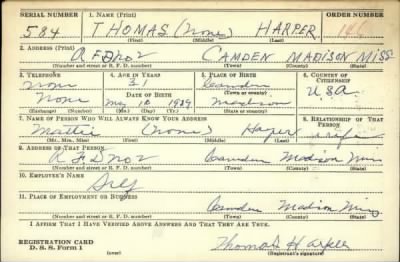 SERIAL NUMBER 1. NAME (Print) ORDER NUMBER
584 THOMAS (none) HARPER
(First) (Middle) (Last)
2. ADDRESS (Print)
RFD no 2 CAMDEN MADISON MISS
(Number and street or R. F. D. number) (Town) (County) (State)
3. TELEPHONE 4. AGE IN YEARS 5. PLACE OF BIRTH 6. COUNTRY OF CITIZENSHIP
none Camden
DATE OF BIRTH (Town or county)
none May 10 Madison U.S.A
(Exchange) (Number) (Mo.) (Day) (Yr.) (State or country)
7. NAME OF PERSON WHO WILL ALWAYS KNOW YOUR ADDRESS 8. RELATIONSHIP OF THAT PERSON
Mattie (none) Harper wife
(Mr., Mrs., Miss) (First) (Middle) (Last)
9. ADDRESS OF THAT PERSON
RFD no 2 Camden Madison Miss
(Number and street or R. F. D. number) (Town) (County) (State)
10. EMPLOYER'S NAME
Self
11. PLACE OF EMPLOYMENT OR BUSINESS
Camden Madison Miss
(Number and street or R. F. D. number) (Town) (County) (State)
I AFFIRM THAT I HAVE VERIFIED ABOVE ANSWERS AND THAT THEY ARE TRUE.
REGISTRATION CARD
D. S. S. Form 1 (over) Thomas Harper
(Registrant's signature)